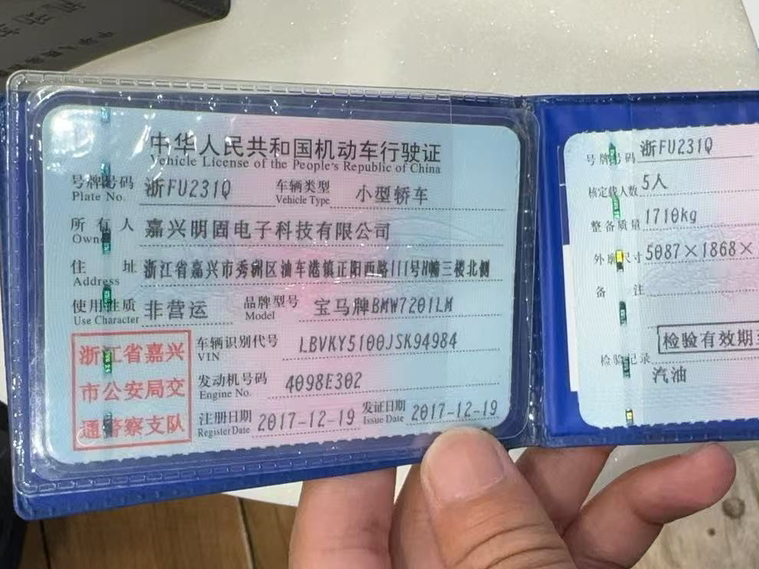 中华人民共和国机动车行驶证
Vehicle License of the People's Republic of China
号牌号码 浙FU231Q 车辆类型 小型轿车
Plate No. Vehicle Type
所有人 嘉兴明固电子科技有限公司
Owner
住址 浙江省嘉兴市秀洲区油车港镇正阳西路111号H幢三楼北侧
Address
使用性质 非营运 品牌型号 宝马牌BMW7201LM
Use Character Model
浙江省嘉兴
市公安局交
通警察支队
车辆识别代号 LBVKY5100JSK94984
VIN
发动机号码 4098E302
Engine No.
注册日期 2017-12-19 发证日期 2017-12-19
Register Date Issue Date
号牌号码 浙FU231Q
核定载人数 5人
整备质量 1710kg
外廓尺寸 5087×1868×
备注
检验有效期至
检验记录
汽油